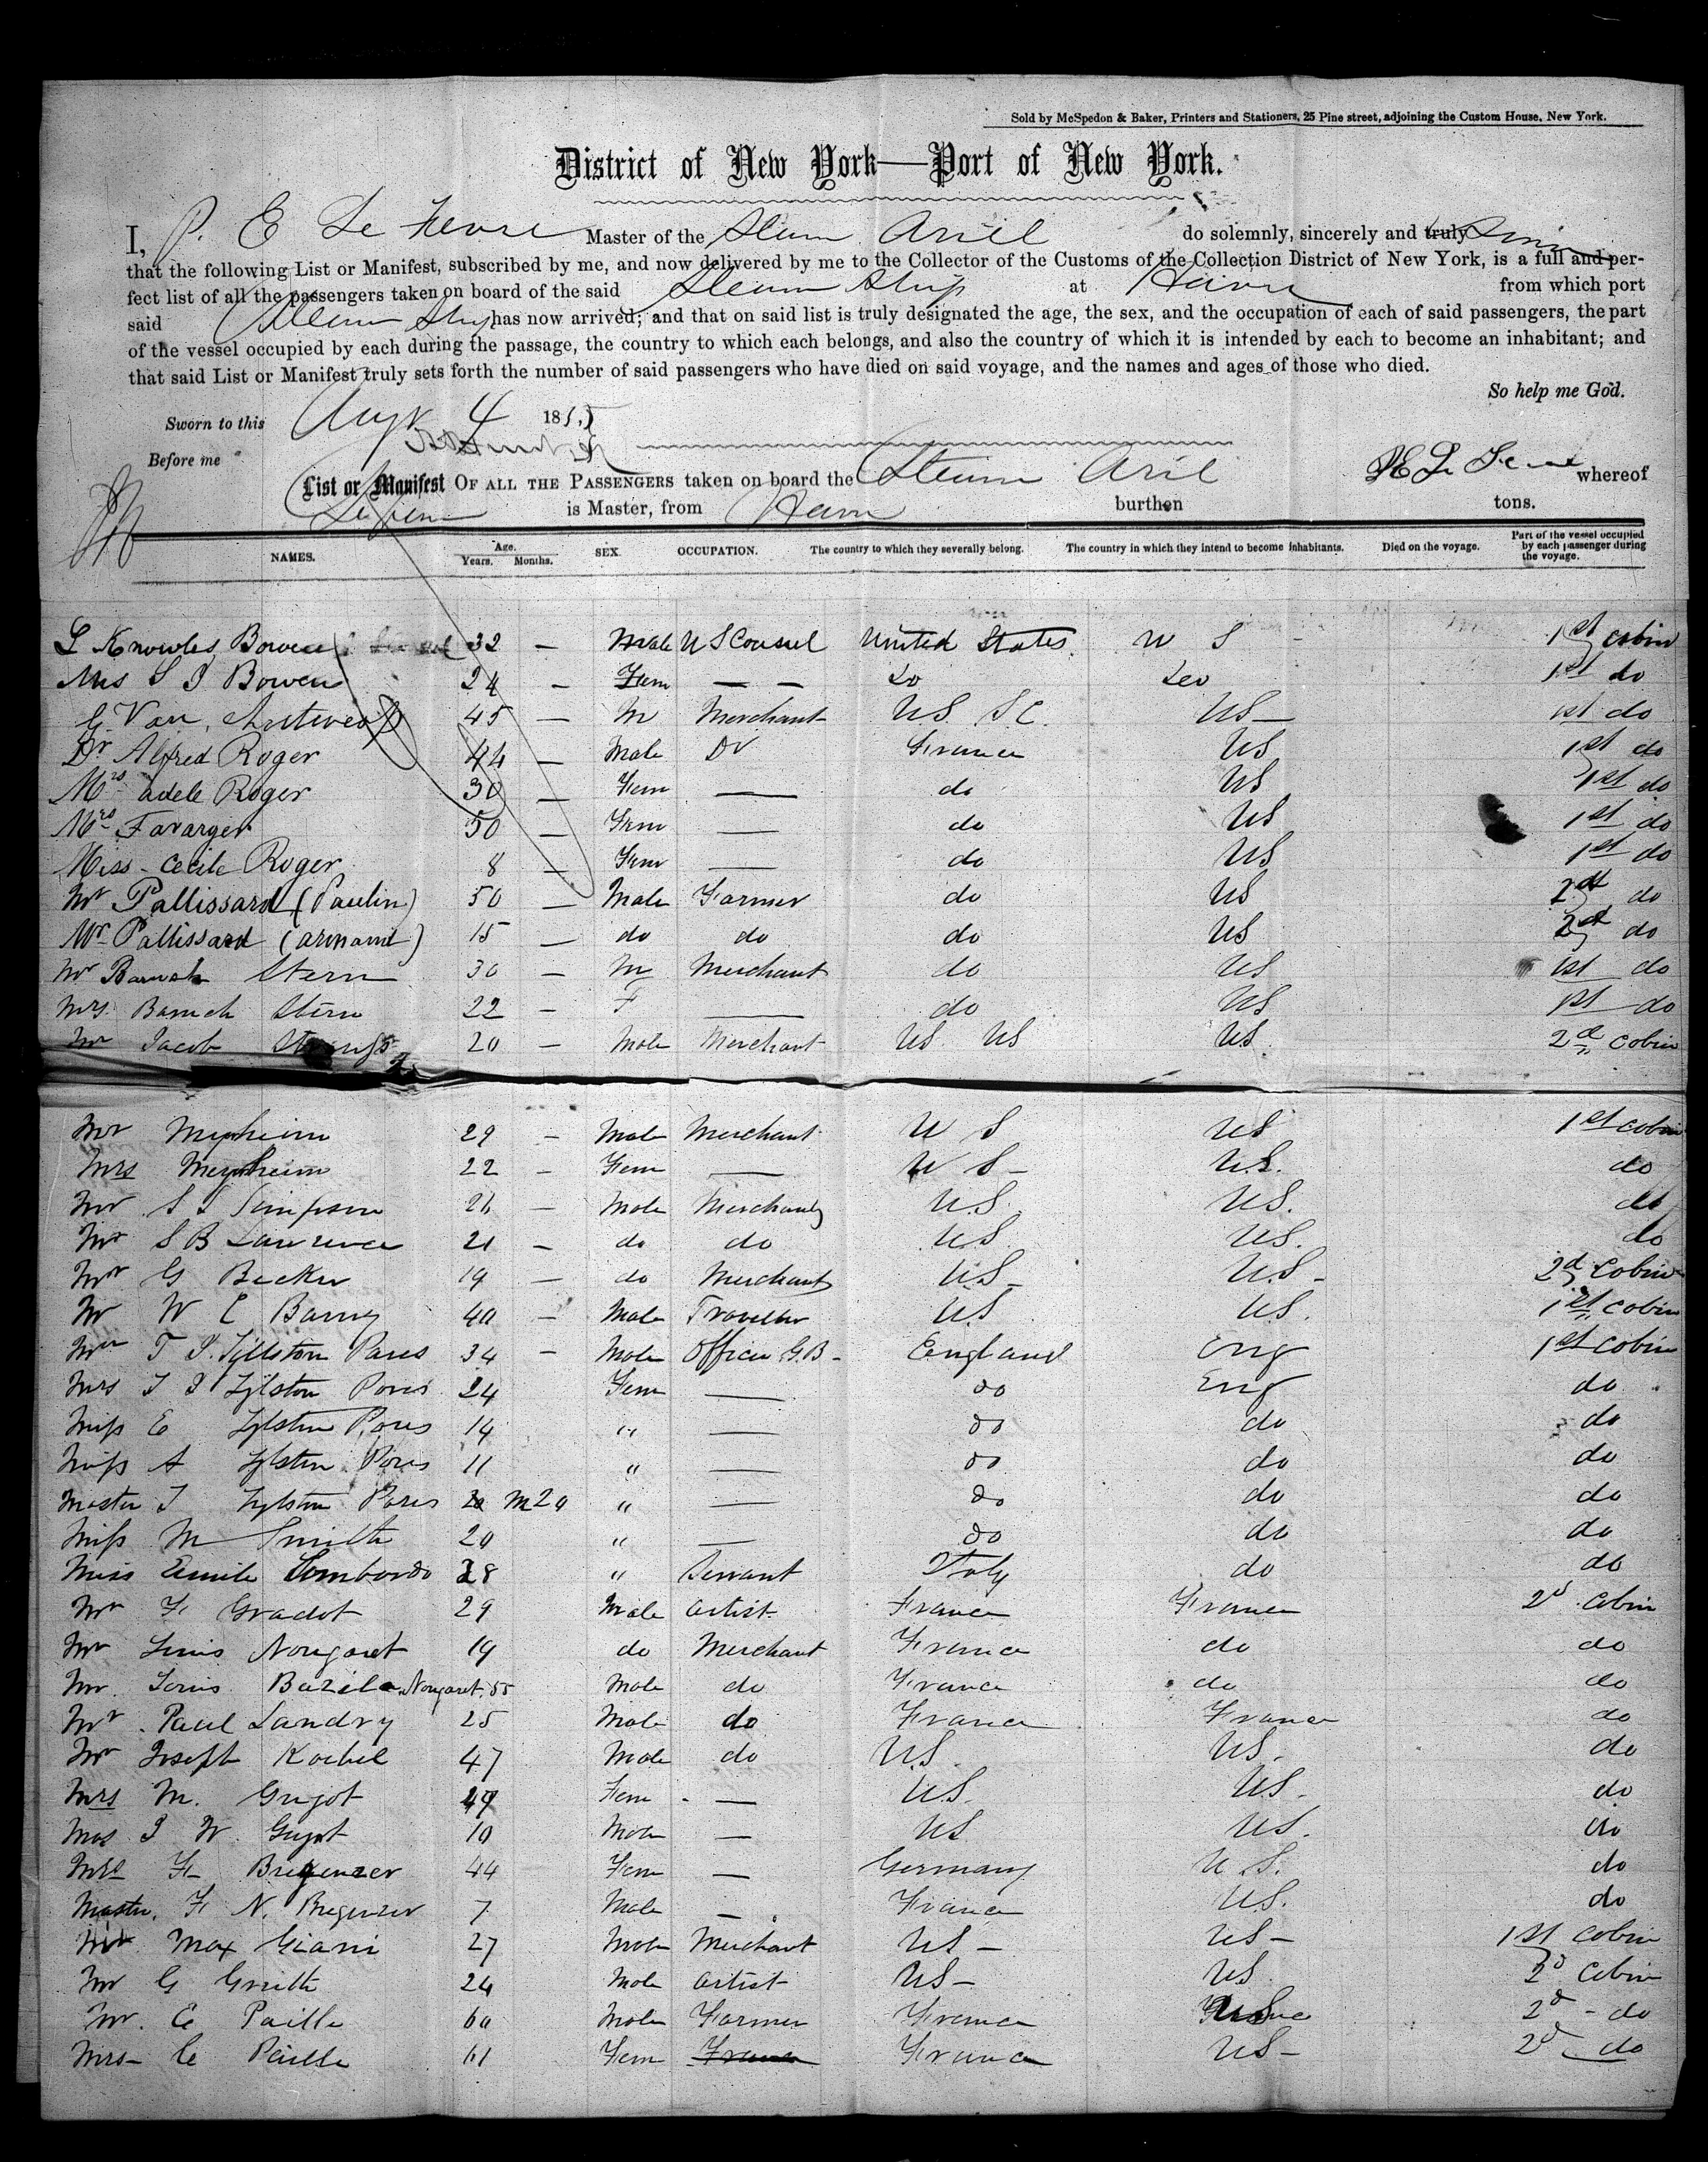 Sold by McSpedon & Baker, Printers and Stationers, 25 Pine street, adjoining the Custom House, New York.
District of New York—Port of New York.
I, P. E Le Fevre Master of the Steam Ariel do solemnly, sincerely and truly
that the following List or Manifest, subscribed by me, and now delivered by me to the Collector of the Customs of the Collection District of New York, is a full and per-
fect list of all the passengers taken on board of the said Steam Ship at Havre from which port
said Steam Ship has now arrived; and that on said list is truly designated the age, the sex, and the occupation of each of said passengers, the part
of the vessel occupied by each during the passage, the country to which each belongs, and also the country of which it is intended by each to become an inhabitant; and
that said List or Manifest truly sets forth the number of said passengers who have died on said voyage, and the names and ages of those who died.
So help me God.
Sworn to this Augt 4 1855
Before me
List or Manifest OF ALL THE PASSENGERS taken on board the Steam Ariel whereof
is Master, from Havre burthen tons.
NAMES. Age. Years. Months. SEX. OCCUPATION. The country to which they severally belong. The country in which they intend to become inhabitants. Died on the voyage. Part of the vessel occupied by each passenger during the voyage.
L Knowles Bowen 32 — Male US Consul United States. U S 1st cabin
Mrs S J Bowen 24 — Fem — — Do Do 1st do
G Van 45 — M Merchant US SC. US— 1st do
Dr Alfred Roger 44 — Male Dr France US 1st do
Mrs adele Roger 30 — Fem — do US 1st do
Mrs Favarger 50 — Fem — do US 1st do
Miss Cecile Roger 8 — Fem — do US 1st do
Mr Pallissard (Paulin) 50 — Male Farmer do US 2d do
Mr Pallissard (armand) 15 — do do do US 2d do
Mr Baruch Stern 30 — M Merchant do US 1st do
Mrs. Baruch Stern 22 — F — do US 1st do
Mr Jacob 20 — Male Merchant US US US 2d Cabin
Mr 29 — Male Merchant U S US 1st cabin
Mrs 22 — Fem — U S — U.S. do
Mr S J Simpson 21 — Male Merchant U.S. U.S. do
Mr S B Lawrence 21 — do do U.S U.S. do
Mr G Becker 19 — do Merchant U.S— U.S— 2d Cabin
Mr W C Barry 40 — Male Traveller U.S U.S. 1st cabin
Mr T J. Tylston Pares 34 — Male Officer G.B— England Eng 1st cabin
Mrs T J Tylston Pares 24 Fem — do Eng do
Miss E Tylston Pares 14 " — do do do
Miss A Tylston Pares 11 " — do do do
Master J Tylston Pares M20 " — do do do
Miss M Smith 20 " — do do do
Miss Emile Lombardo 28 " Servant Italy do do
Mr F Gradot 29 Male artist France France 2d Cabin
Mr Louis Nougaret 19 do Merchant France do do
Mr. Louis Bazile Nougaret 55 Male do France do do
Mr. Paul Landry 25 Male do France France do
Mr Joseph Koebel 47 Male do US US. do
Mrs M. Guyot 29 Fem — U.S. U.S. do
Mas J W. Guyot 10 Male — US U.S. do
Mrs F Bregenzer 44 Fem — Germany U.S. do
Master. F N. Bregenzer 7 Male — France U.S. do
Mr Max Giani 27 Male Merchant US — US — 1st Cabin
Mr G 24 Male artist US — US 2d Cabin
Mr. E Paille 60 Male Farmer France US 2d — do
Mrs— C Paille 61 Fem France France US — 2d do